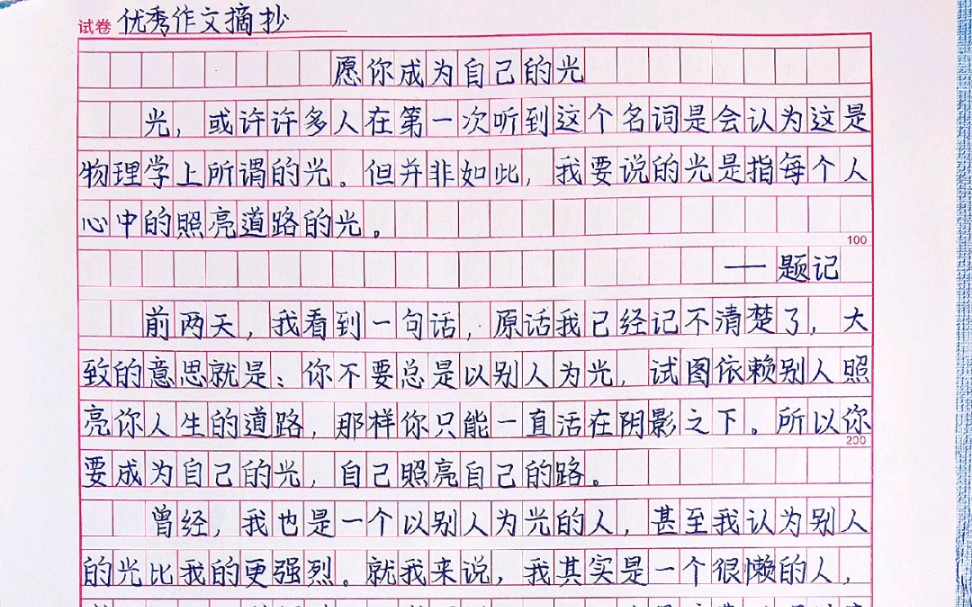 试卷 优秀作文摘抄
愿你成为自己的光
光，或许许多人在第一次听到这个名词是会认为这是
物理学上所谓的光。但并非如此，我要说的光是指每个人
心中的照亮道路的光。
100
——题记
前两天，我看到一句话，原话我已经记不清楚了，大
致的意思就是：你不要总是以别人为光，试图依赖别人照
亮你人生的道路，那样你只能一直活在阴影之下。所以你
200
要成为自己的光，自己照亮自己的路。
曾经，我也是一个以别人为光的人，甚至我认为别人
的光比我的更强烈。就我来说，我其实是一个很懒的人，